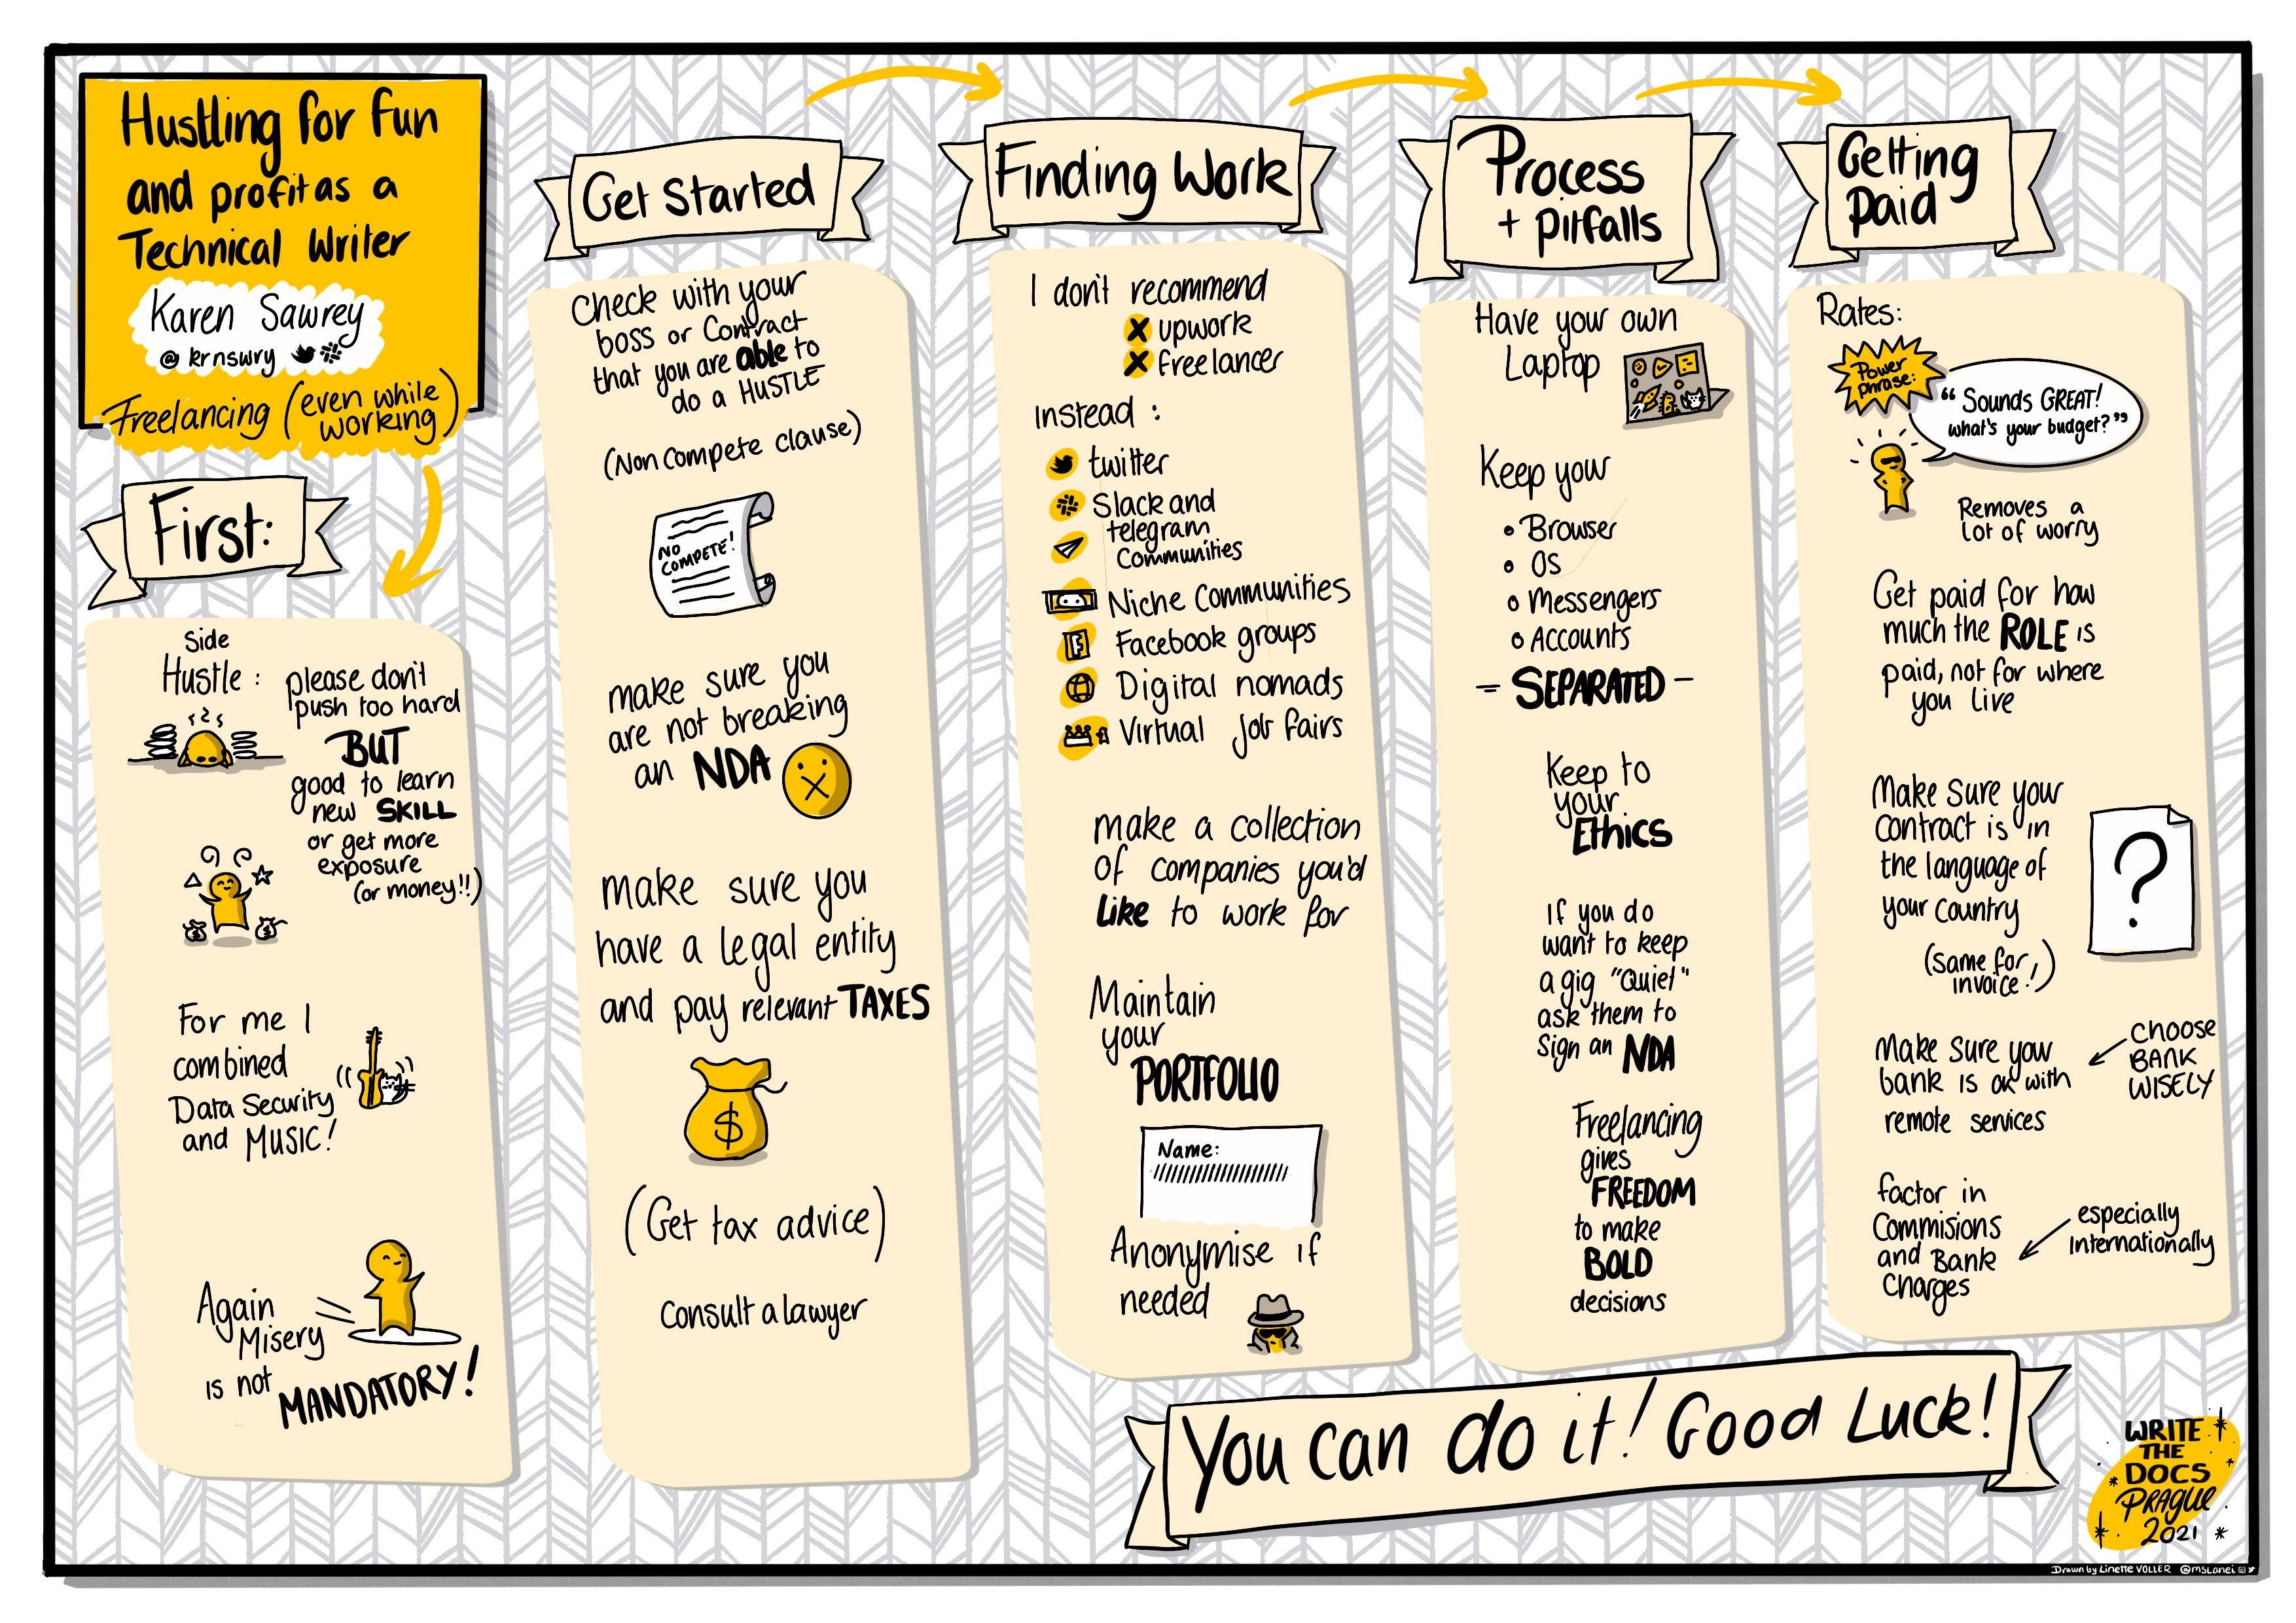 Hustling for fun
and profit as a
Technical Writer
Karen Sawrey
@ krnswry
Freelancing (even while
working)
First:
Side
Hustle :
please don't
push too hard
BUT
good to learn
new SKILL
or get more
exposure
(or money!!)
For me I
combined
Data Security
and MUSIC!
Again
Misery
is not
MANDATORY!
Get Started
Check with your
boss or Contract
that you are able to
do a HUSTLE
(Non compete clause)
NO
COMPETE!
make sure you
are not breaking
an NDA
make sure you
have a legal entity
and pay relevant TAXES
$
(Get tax advice)
Consult a lawyer
Finding Work
I don't recommend
x upwork
x freelancer
Instead :
twitter
Slack and
telegram
Communities
Niche Communities
Facebook groups
Digital nomads
Virtual job fairs
make a collection
of companies you'd
like to work for
Maintain
your
PORTFOLIO
Name:
Anonymise if
needed
Process
+ pitfalls
Have your own
Laptop
Keep your
• Browser
• OS
• Messengers
• Accounts
- SEPARATED -
Keep to
your
Ethics
If you do
want to keep
a gig "Quiet"
ask them to
Sign an NDA
Freelancing
gives
FREEDOM
to make
BOLD
decisions
Getting
paid
Rates:
Power
phrase:
"Sounds GREAT!
what's your budget?"
Removes a
lot of worry
Get paid for how
much the ROLE is
paid, not for where
you live
Make sure your
contract is in
the language of
your country
(same for
invoice!)
?
Make sure your
bank is ok with
remote services
CHOOSE
BANK
WISELY
factor in
Commisions
and Bank
Charges
especially
Internationally
You can do it! Good Luck!
WRITE
THE
DOCS
PRAGUE
2021
Drawn by Linette VOLLER @mslanei